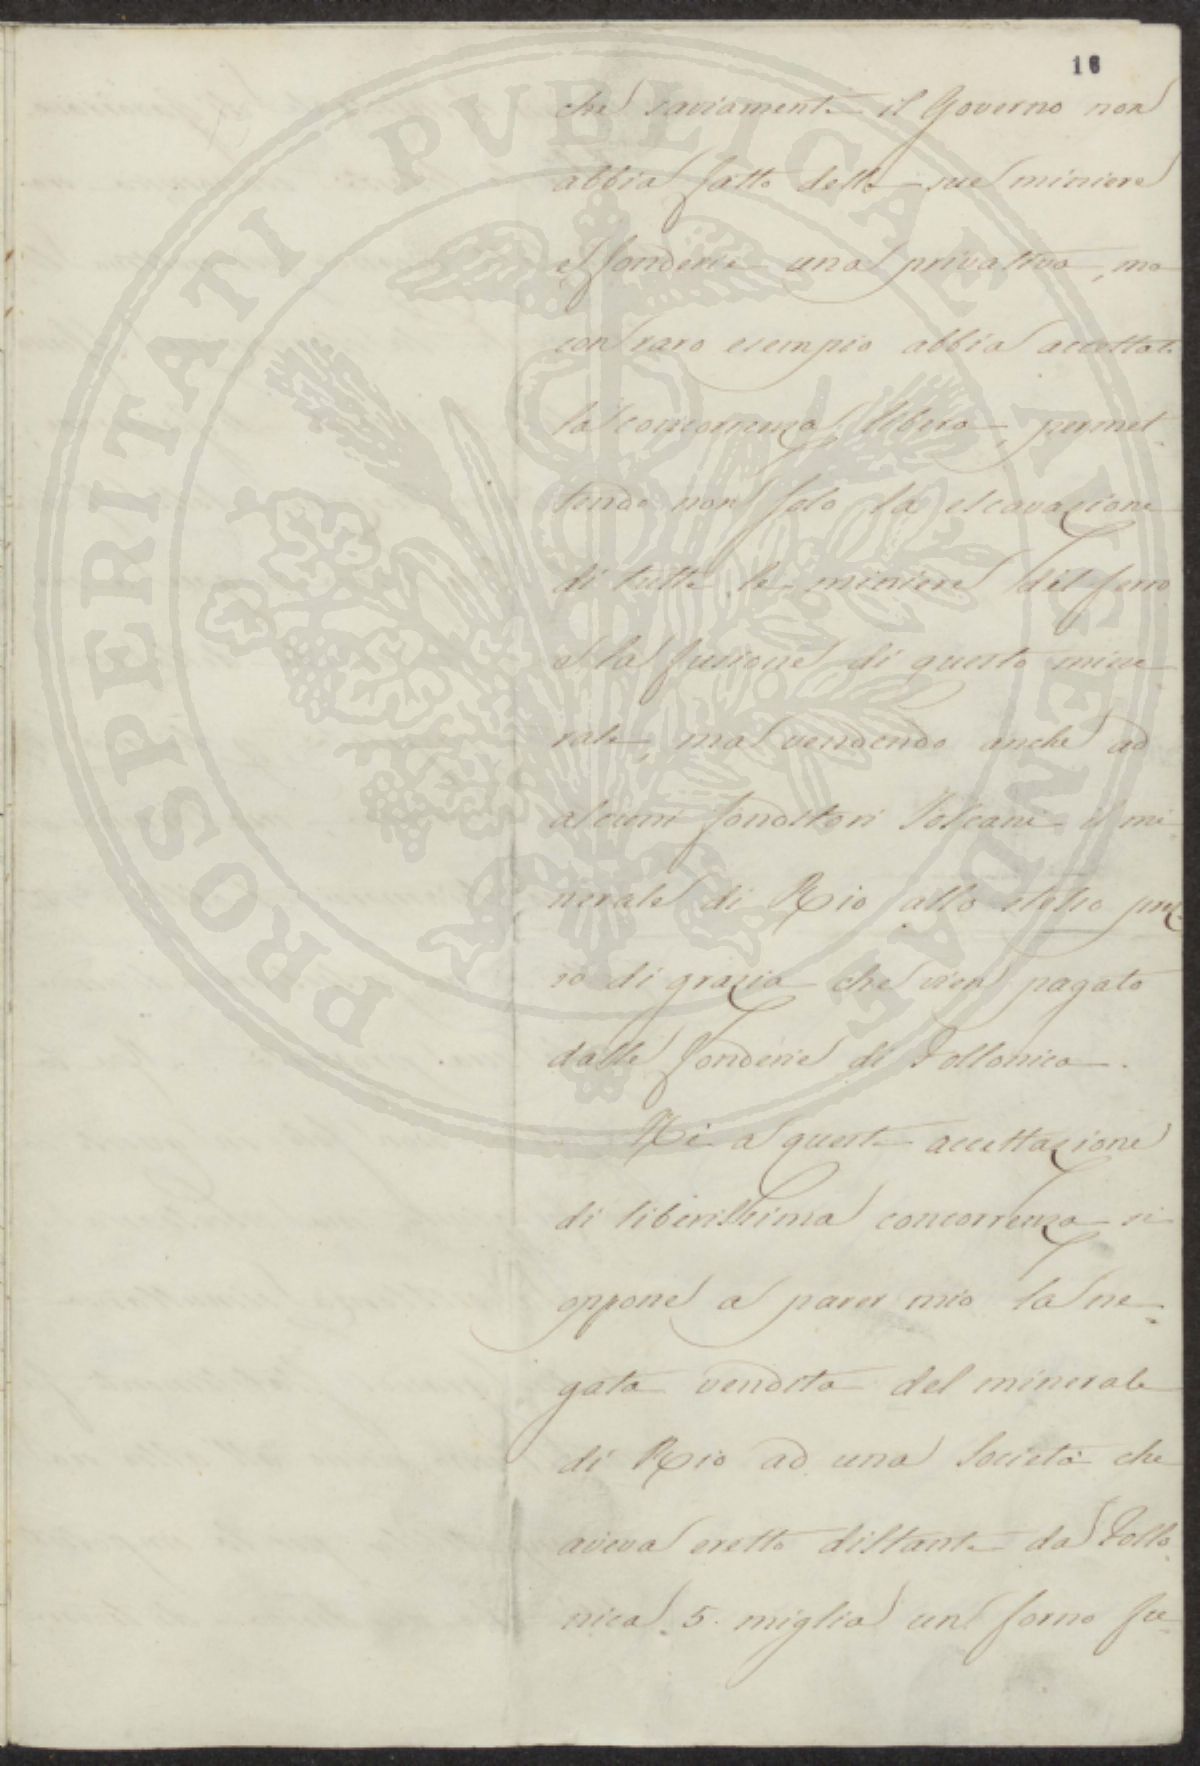 16
che saviamente il Governo non
abbia fatto delle sue miniere
e fonderie una privativa, ma
con raro esempio abbia accettato
la concorrenza libera, permet-
tendo non solo la escavazione
di tutte le miniere del ferro
e la fusione di questo mine-
rale, ma vendendo anche ad
alcuni fonditori Toscani il mi-
nerale di Rio allo stesso prez-
zo di grazia che vien pagato
dalle fonderie di Follonica.
Nè a questa accettazione
di liberissima concorrenza si
oppone a parer mio la ne-
gata vendita del minerale
di Rio ad una Società che
aveva eretto distante da Follo-
nica 5. miglia un forno fu-
PROSPERITATI PUBLICAE AUGENDAE